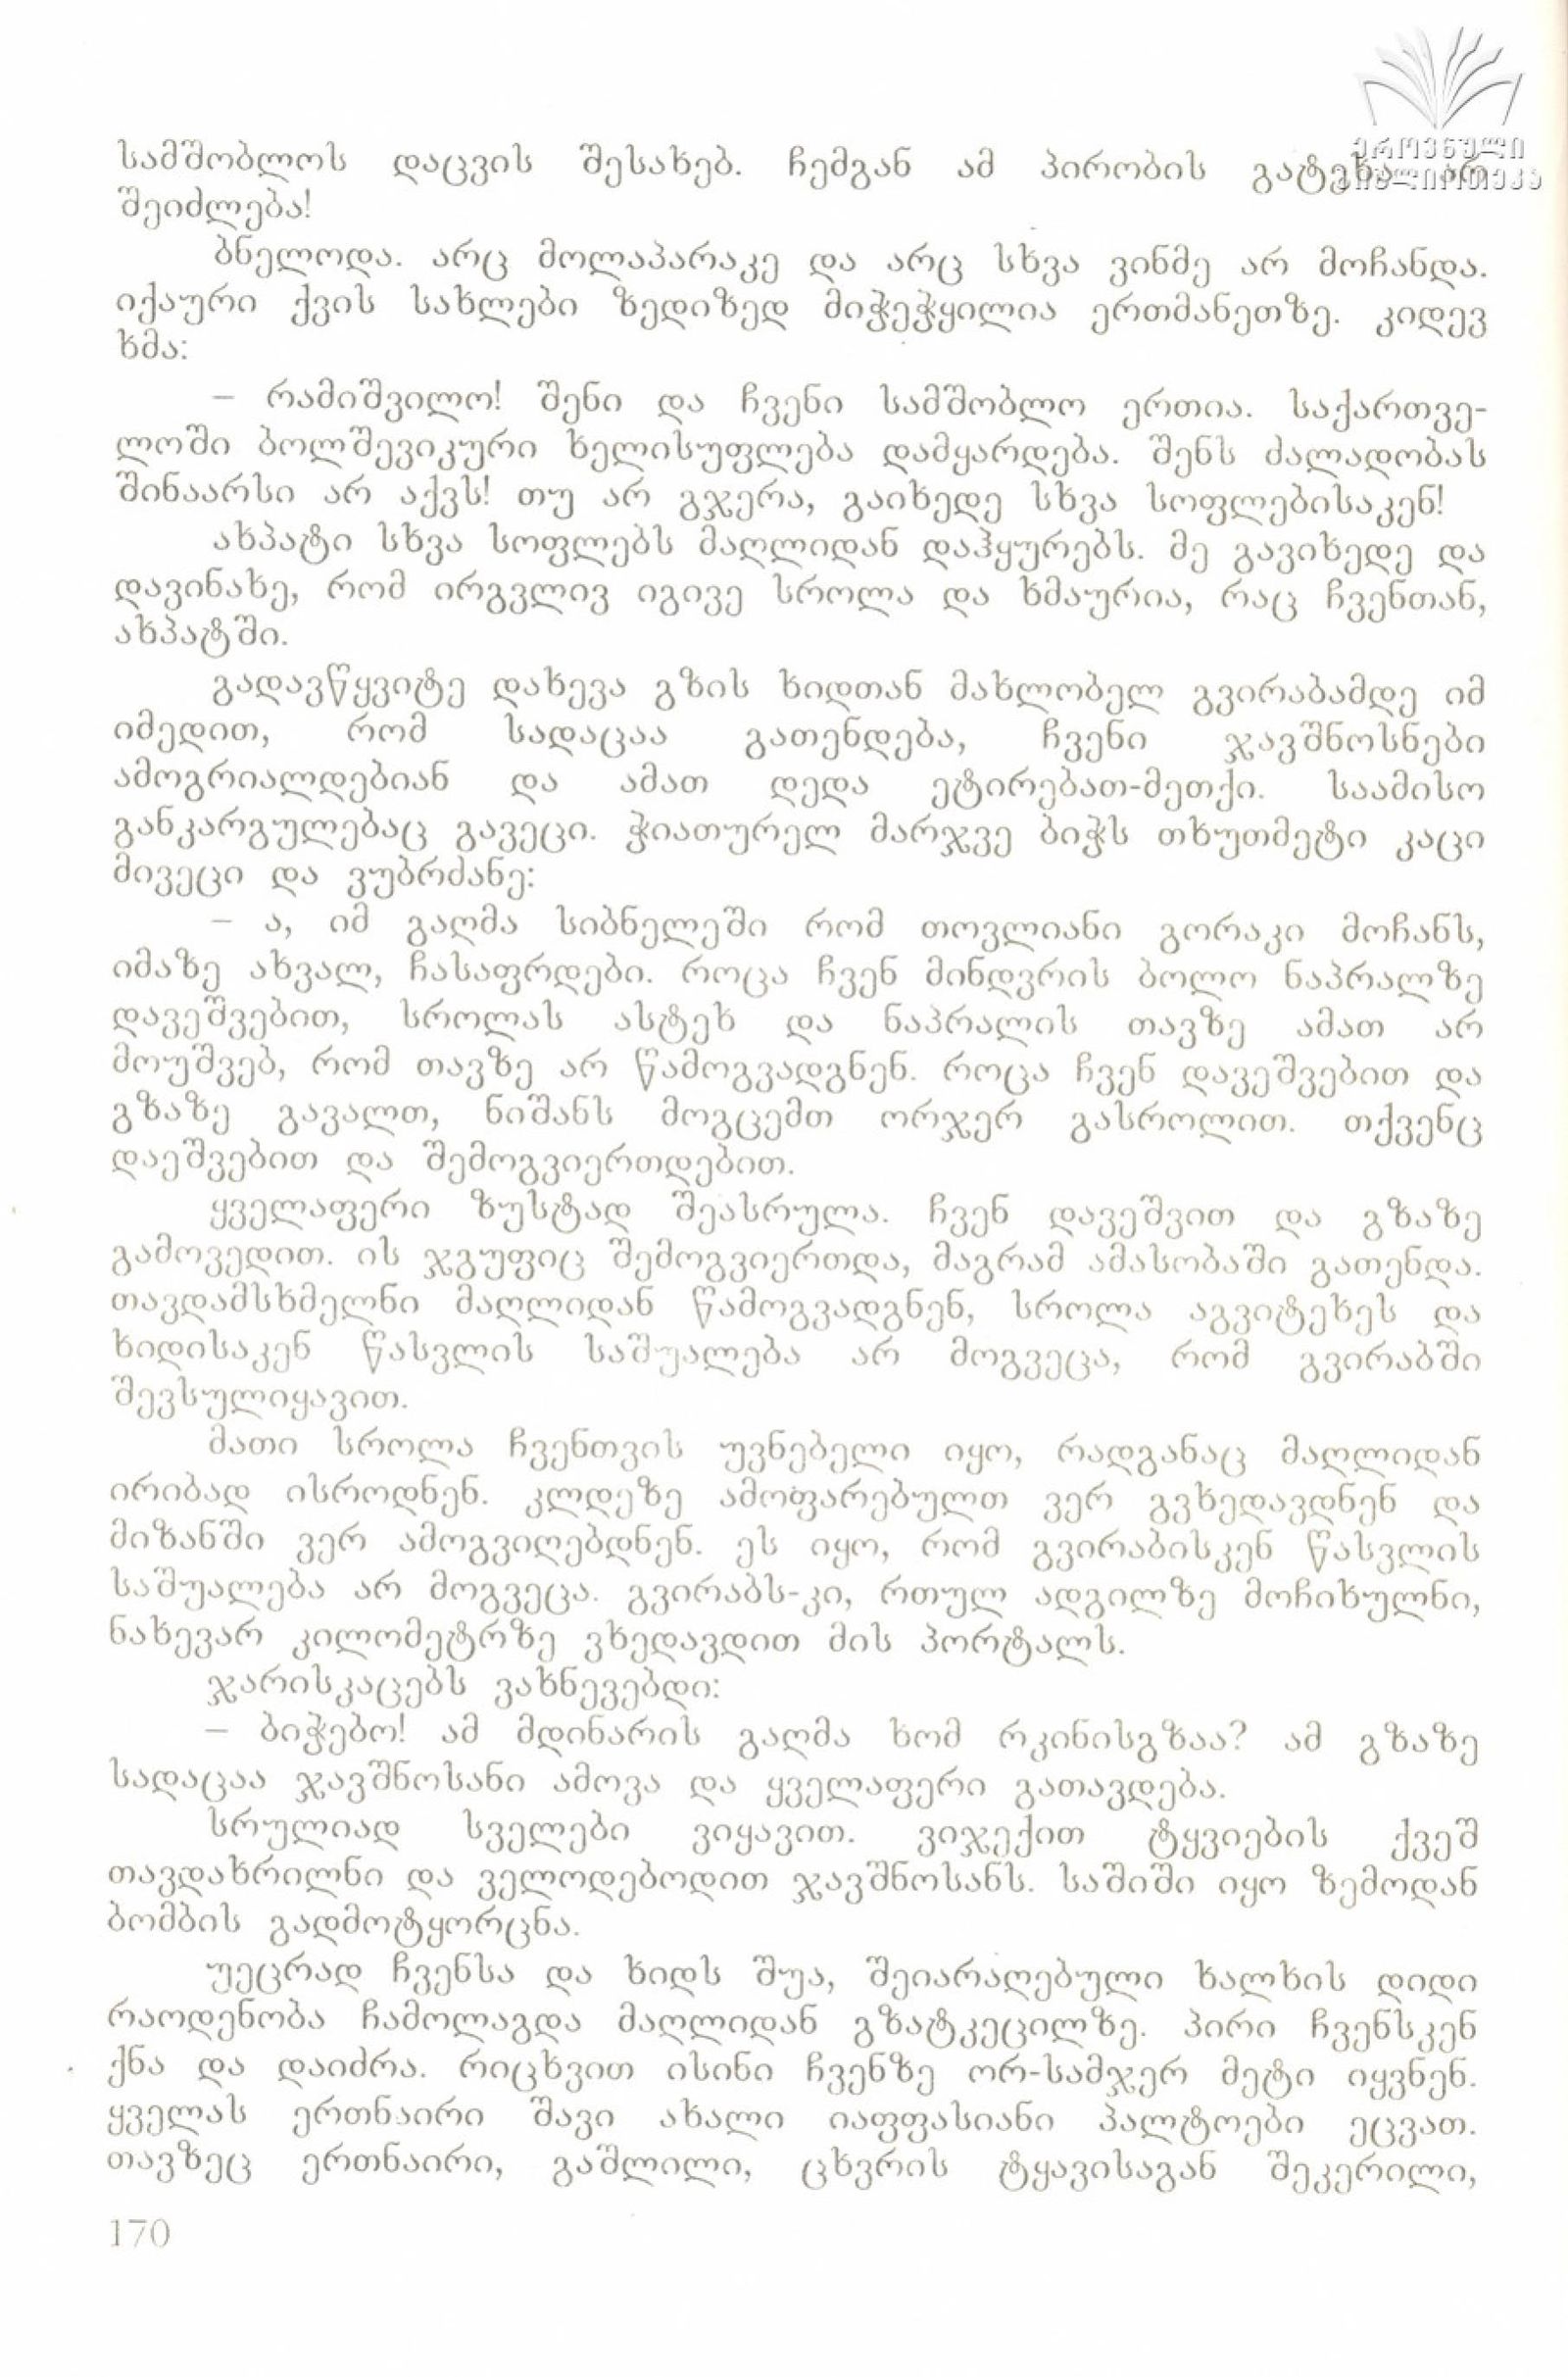 ეროვნული
ბიბლიოთეკა
სამშობლოს დაცვის შესახებ. ჩემგან ამ პირობის გატეხა არ
შეიძლება!
ბნელოდა. არც მოლაპარაკე და არც სხვა ვინმე არ მოჩანდა.
იქაური ქვის სახლები ზედიზედ მიჭეჭყილია ერთმანეთზე. კიდევ
ხმა:
– რამიშვილო! შენი და ჩვენი სამშობლო ერთია. საქართვე-
ლოში ბოლშევიკური ხელისუფლება დამყარდება. შენს ძალადობას
შინაარსი არ აქვს! თუ არ გჯერა, გაიხედე სხვა სოფლებისაკენ!
ახპატი სხვა სოფლებს მაღლიდან დაჰყურებს. მე გავიხედე და
დავინახე, რომ ირგვლივ იგივე სროლა და ხმაურია, რაც ჩვენთან,
ახპატში.
გადავწყვიტე დახევა გზის ხიდთან მახლობელ გვირაბამდე იმ
იმედით, რომ სადაცაა გათენდება, ჩვენი ჯავშნოსნები
ამოგრიალდებიან და ამათ დედა ეტირებათ-მეთქი. საამისო
განკარგულებაც გავეცი. ჭიათურელ მარჯვე ბიჭს თხუთმეტი კაცი
მივეცი და ვუბრძანე:
– ა, იმ გაღმა სიბნელეში რომ თოვლიანი გორაკი მოჩანს,
იმაზე ახვალ, ჩასაფრდები. როცა ჩვენ მინდვრის ბოლო ნაპრალზე
დავეშვებით, სროლას ასტეხ და ნაპრალის თავზე ამათ არ
მოუშვებ, რომ თავზე არ წამოგვადგნენ. როცა ჩვენ დავეშვებით და
გზაზე გავალთ, ნიშანს მოგცემთ ორჯერ გასროლით. თქვენც
დაეშვებით და შემოგვიერთდებით.
ყველაფერი ზუსტად შეასრულა. ჩვენ დავეშვით და გზაზე
გამოვედით. ის ჯგუფიც შემოგვიერთდა, მაგრამ ამასობაში გათენდა.
თავდამსხმელნი მაღლიდან წამოგვადგნენ, სროლა აგვიტეხეს და
ხიდისაკენ წასვლის საშუალება არ მოგვეცა, რომ გვირაბში
შევსულიყავით.
მათი სროლა ჩვენთვის უვნებელი იყო, რადგანაც მაღლიდან
ირიბად ისროდნენ. კლდეზე ამოფარებულთ ვერ გვხედავდნენ და
მიზანში ვერ ამოგვიღებდნენ. ეს იყო, რომ გვირაბისკენ წასვლის
საშუალება არ მოგვეცა. გვირაბს-კი, რთულ ადგილზე მოჩიხულნი,
ნახევარ კილომეტრზე ვხედავდით მის პორტალს.
ჯარისკაცებს ვახნევებდი:
– ბიჭებო! ამ მდინარის გაღმა ხომ რკინისგზაა? ამ გზაზე
სადაცაა ჯავშნოსანი ამოვა და ყველაფერი გათავდება.
სრულიად სველები ვიყავით. ვიჯექით ტყვიების ქვეშ
თავდახრილნი და ველოდებოდით ჯავშნოსანს. საშიში იყო ზემოდან
ბომბის გადმოტყორცნა.
უეცრად ჩვენსა და ხიდს შუა, შეიარაღებული ხალხის დიდი
რაოდენობა ჩამოლაგდა მაღლიდან გზატკეცილზე. პირი ჩვენსკენ
ქნა და დაიძრა. რიცხვით ისინი ჩვენზე ორ-სამჯერ მეტი იყვნენ.
ყველას ერთნაირი შავი ახალი იაფფასიანი პალტოები ეცვათ.
თავზეც ერთნაირი, გაშლილი, ცხვრის ტყავისაგან შეკერილი,
170